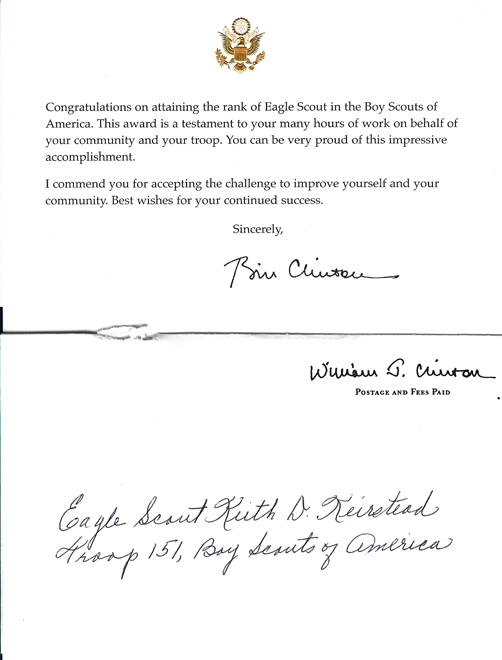 Congratulations on attaining the rank of Eagle Scout in the Boy Scouts of
America. This award is a testament to your many hours of work on behalf of
your community and your troop. You can be very proud of this impressive
accomplishment.
I commend you for accepting the challenge to improve yourself and your
community. Best wishes for your continued success.
Sincerely,
Bill Clinton
William J. Clinton
POSTAGE AND FEES PAID
Eagle Scout Keith D. Keirstead
Troop 151, Boy Scouts of America